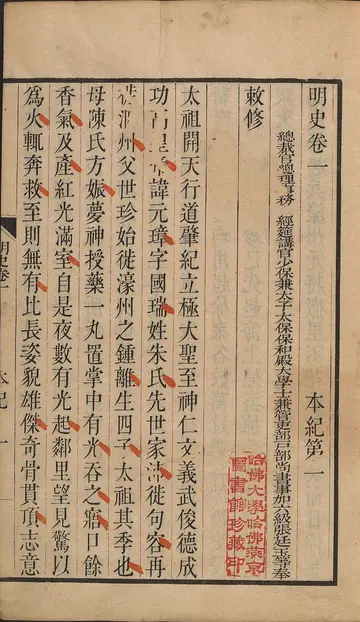 明史卷一　本紀第一
總裁官總理事務　經筵講官少保兼太子太保保和殿大學士兼管吏部戶部尚書事加六級張廷玉等奉
敕修
太祖開天行道肇紀立極大聖至神仁文義武俊德成
功高皇諱元璋字國瑞姓朱氏先世家沛徙句容再
徙泗州父世珍始徙濠州之鍾離生四子太祖其季也
母陳氏方娠夢神授藥一丸置掌中有光吞之寤口餘
香氣及產紅光滿室自是夜數有光起鄰里望見驚以
為火輒奔救至則無有比長姿貌雄傑奇骨貫頂志意
明史卷一　本紀一
哈佛大學哈佛燕京
圖書館珍藏印